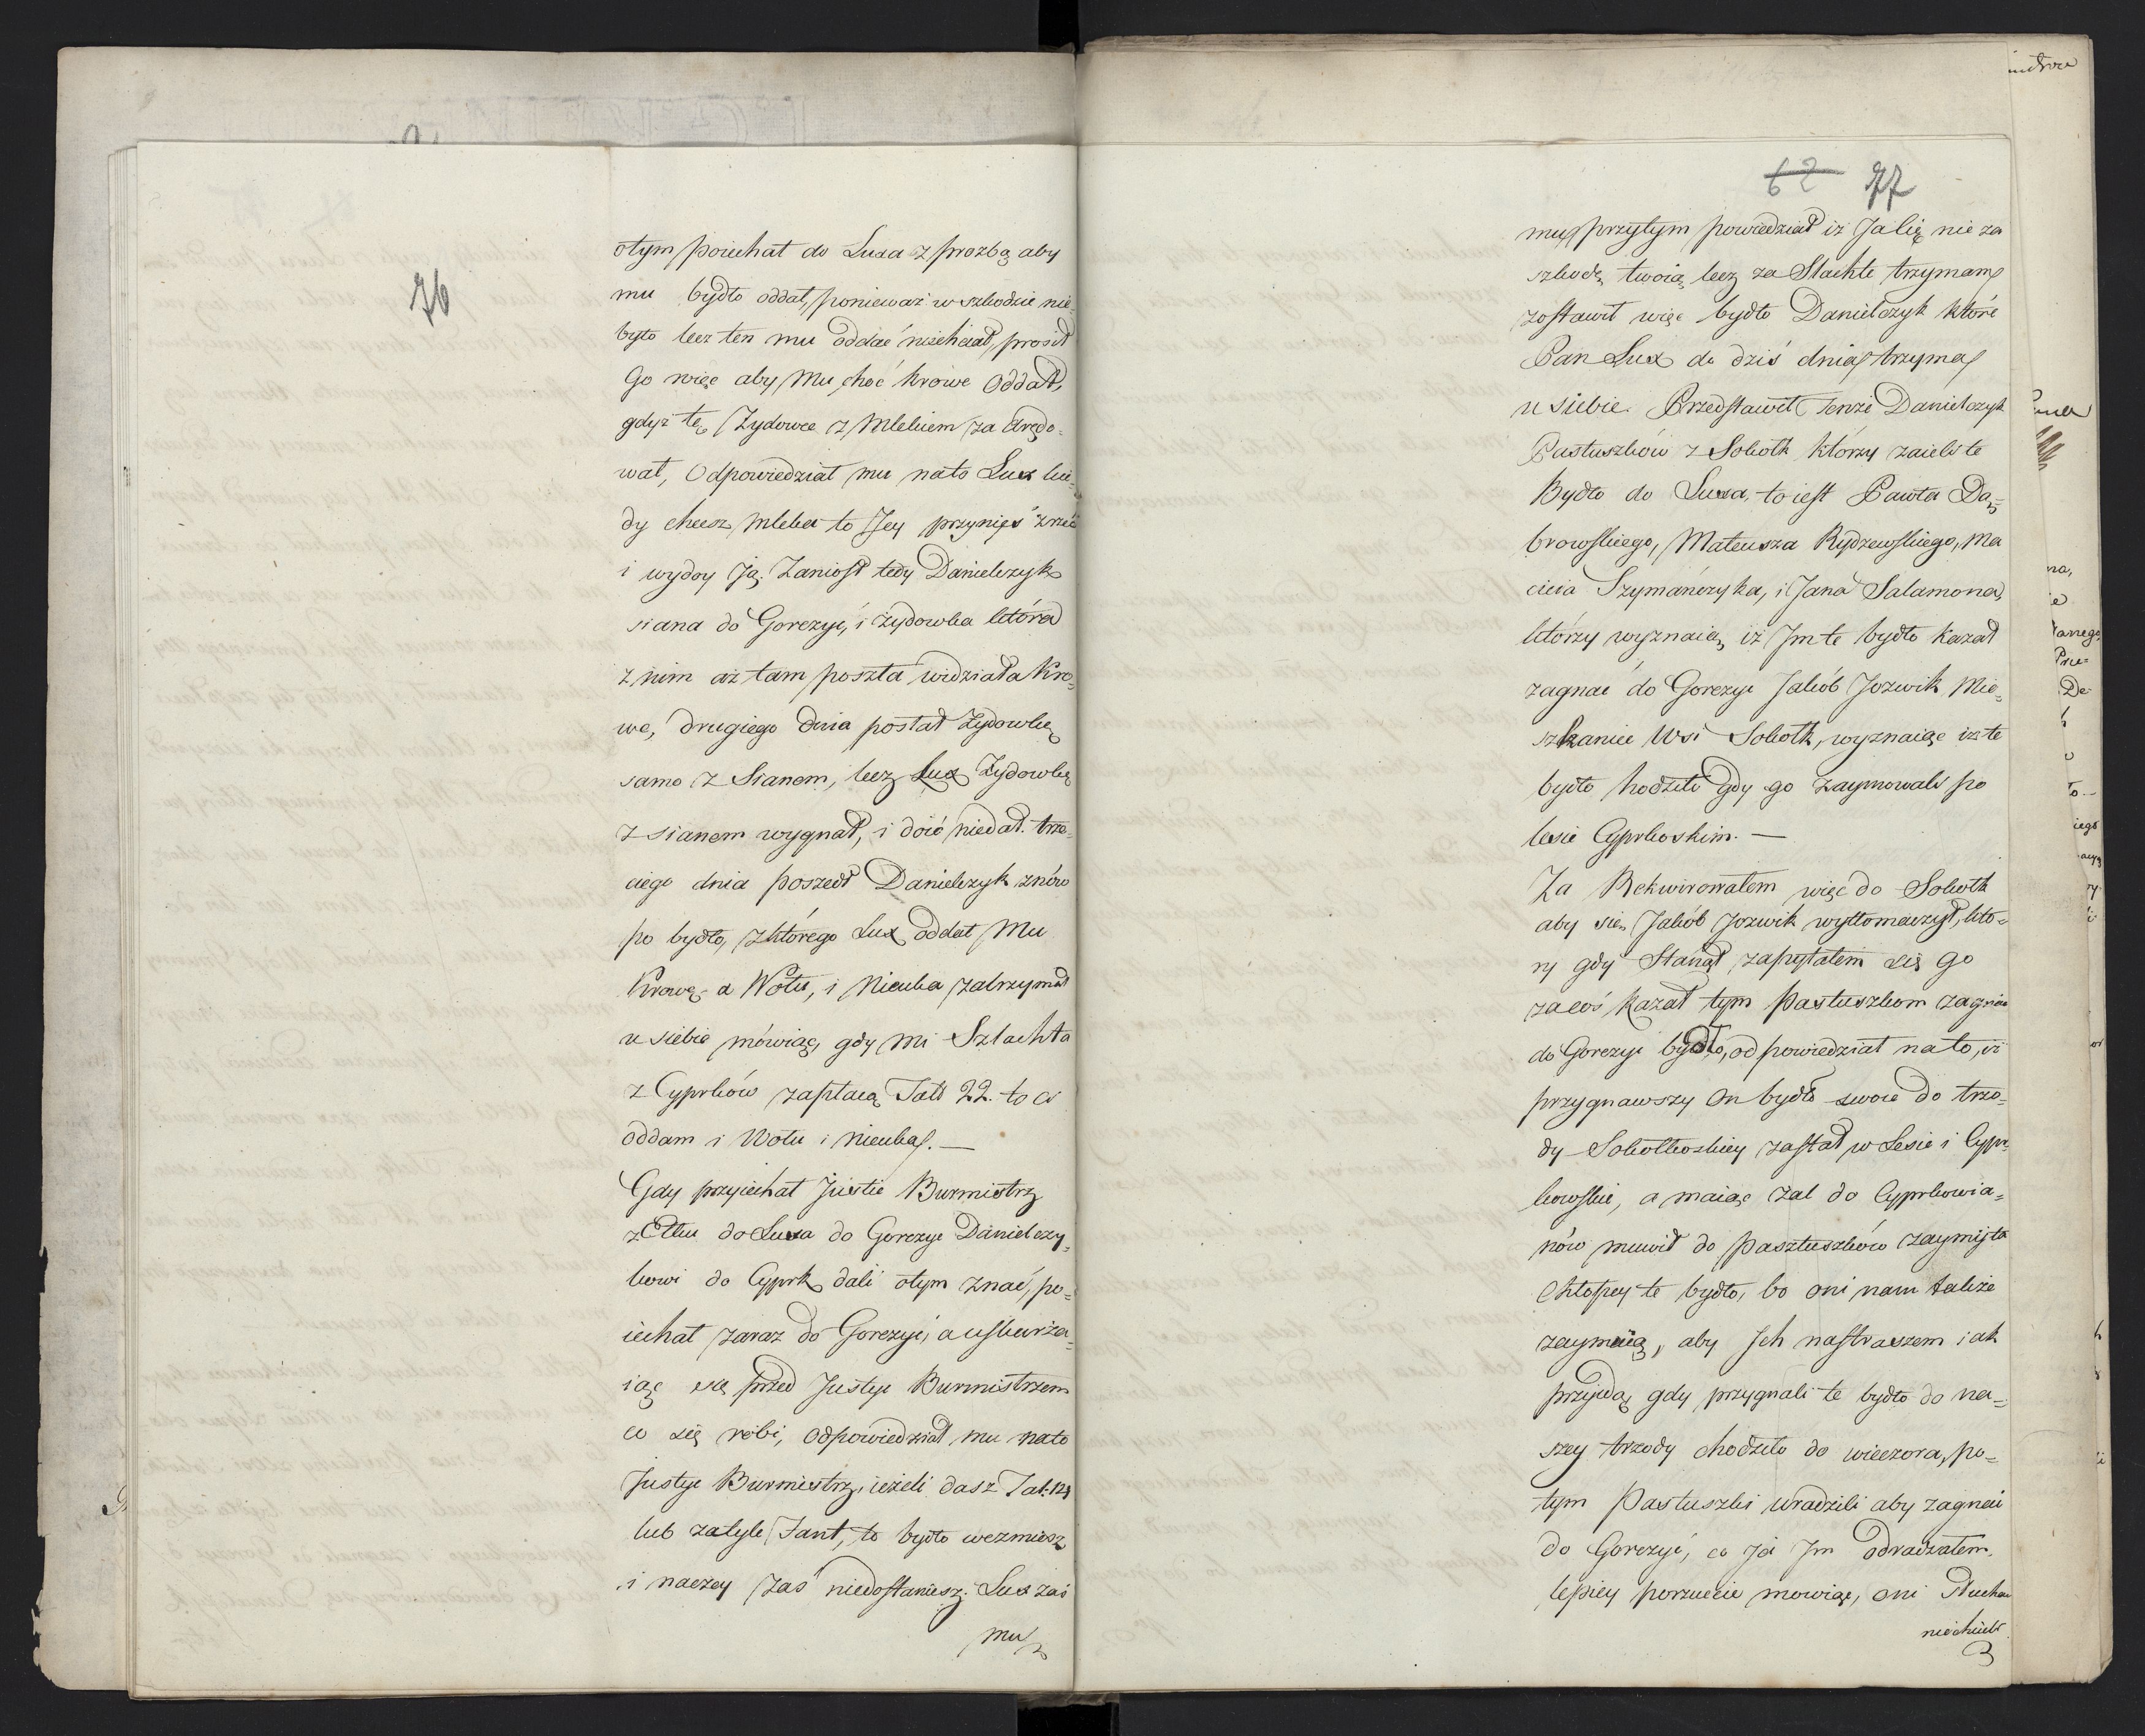 76
otym poiechał do Luxa z prozbą aby
mu bydło oddał, ponieważ w szkodzie nie
było lecz ten mu oddać niechciał, prosił
Go więc aby Mu choć krowe Oddał,
gdyż tę Zydowce z Mlekiem za Arędo-
wał, Odpowiedział mu nato Lux kie-
dy chcesz Mleka to Jey przynieś zrzeć
i wydoy Ją. Zaniosł tedy Danielczyk
siana do Gorczyc, i żydowka która
z nim aż tam poszła widziała Kro-
we, drugiego dnia posłał Zydowkę
samo z Sianem, lecz Lux Zydowkę
z sianem wygnał, i doić niedał. trze-
ciego dnia poszedł Danielczyk znów
po bydło, zktórego Lux oddał Mu
Krowę a Wołu, i Nieuka zatrzymał
u siebie mówiąc, gdy mi Szlachta
z Cyprków zapłacą Tall 22. to Ci
oddam i Wołu i nieuka. —
Gdy przyiechał Justic Burmistrz
z Ełku do Luxa do Gorczyc Danielczy-
kowi do Cyprk dali otym znać, po-
iechał zaraz do Gorczyc, a uskarża-
iąc się przed Justyc Burmistrzem
co się robi, odpowiedział mu nato
Justyc Burmistrz, ieżeli dasz Tal. 12
lub zatyle Fant, to bydło wezmiesz
inaczey zaś niedostaniesz. Lux zaś
mu
62 77
mu przytym powiedział iż Ja Cię nie za
szkodę twoią lecz za Slachte trzymam
zostawił więc bydło Danielczyk które
Pan Lux do dziś dnia trzyma
u siebie. Przedstawił Tenże Danielczyk
Pastuszków z Sobotk którzy zaieli te
Bydło do Luxa, to iest Pawła Dą-
browskiego, Mateusza Rydzewskiego, Ma
cieia Szymańczyka, i Jana Salamona,
którzy wyznaią iż Im te bydło kazał
zagnać do Gorczyc Jakób Jozwik Mie-
szkaniec Wsi Sobotk, wyznaiąc iż te
bydło hodziło gdy go zaymowali po
lesie Cyprkoskim. —
Za Rekwirowałem więc do Sobotk
aby sie Jakób Jozwik wytłomaczył, któ-
ry gdy Stanął zapytałem się go
zacoś kazał tym Pastuszkom zagnać
do Gorczyc bydło, odpowiedział nato, iż
przygnawszy On bydło swoie do trzo-
dy Sobotkoskiey zastał w Lesie i Cypr-
kowskie, a maiąc żal do Cyprkowia-
nów muwił do pasztuszków zaymiyta
Chłopcy te bydło, bo oni nam także
zaymuią, aby Ich nastraszem iak
przyidą gdy przygnali te bydło do na-
szey trzody chodziło do wieczora, po-
tym Pastuszki uradzili aby zagnać
do Gorczyc, co Ja Im odradzałem.
lepiey porzuccie mowiąc, oni Słuchać
niechcieli